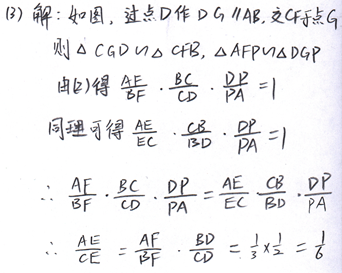 (3) 解：如图，过点D作DG∥AB，交CF于点G
则△CGD∽△CFB，△AFP∽△DGP
由(2)得 AF/BF · BC/CD · DP/PA = 1
同理可得 AE/EC · CB/BD · DP/PA = 1
∴ AF/BF · BC/CD · DP/PA = AE/EC · CB/BD · DP/PA
∴ AE/CE = AF/BF · BD/CD = 1/3 × 1/2 = 1/6